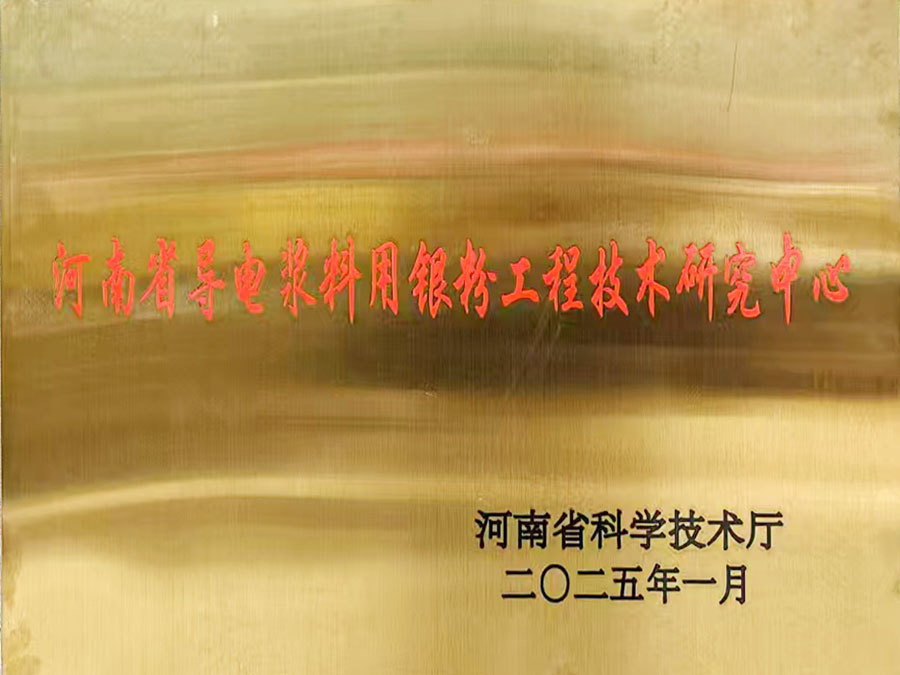 河南省导电浆料用银粉工程技术研究中心
河南省科学技术厅
二〇二五年一月